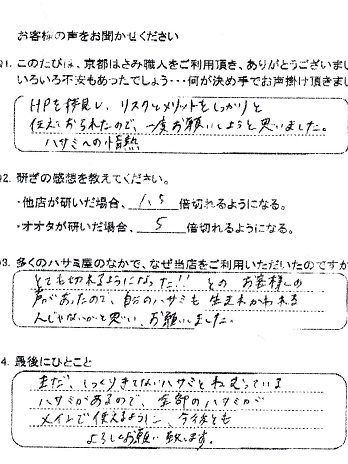 お客様の声をお聞かせください
1. このたびは、京都はさみ職人をご利用頂き、ありがとうございまし
いろいろ不安もあったでしょう・・・何が決め手でお声掛け頂きまし
HPを拝見し、リスクとメリットをしっかりと
伝えておられたので、一度お願いしようと思いました。
ハサミへの情熱
2. 研ぎの感想を教えてください。
・他店が研いだ場合、 倍切れるようになる。
・オオタが研いだ場合、 5 倍切れるようになる。
3. 多くのハサミ屋のなかで、なぜ当店をご利用いただいたのですか
とても切れるようになった!! との お客様の
声があったので、自分のハサミも 生まれかわれる
んじゃないかと思い、お願いしました。
4. 最後にひとこと
まだ、しっくりきてないハサミと ねむっている
ハサミがあるので、全部のハサミが
メインで使えるように、今後とも
よろしくお願い致します。